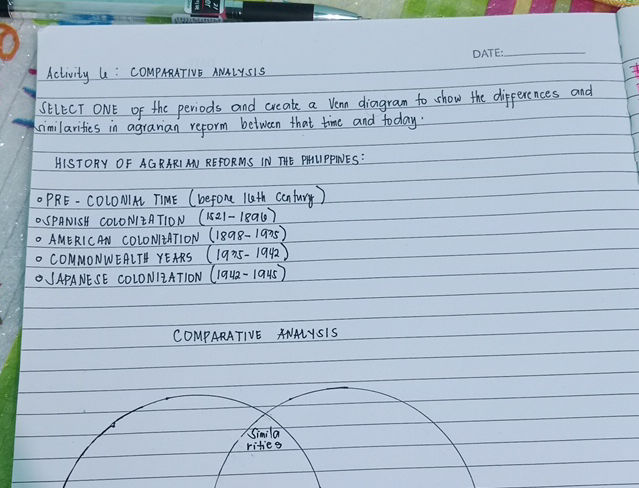 DATE:
Activity 6 : COMPARATIVE ANALYSIS
SELECT ONE of the periods and create a Venn diagram to show the differences and
similarities in agrarian reform between that time and today.
HISTORY OF AGRARIAN REFORMS IN THE PHILIPPINES:
• PRE - COLONIAL TIME (before 16th Century)
• SPANISH COLONIZATION (1521-1896)
• AMERICAN COLONIZATION (1898-1935)
• COMMONWEALTH YEARS (1935-1942)
• JAPANESE COLONIZATION (1942-1945)
COMPARATIVE ANALYSIS
Simila
rities